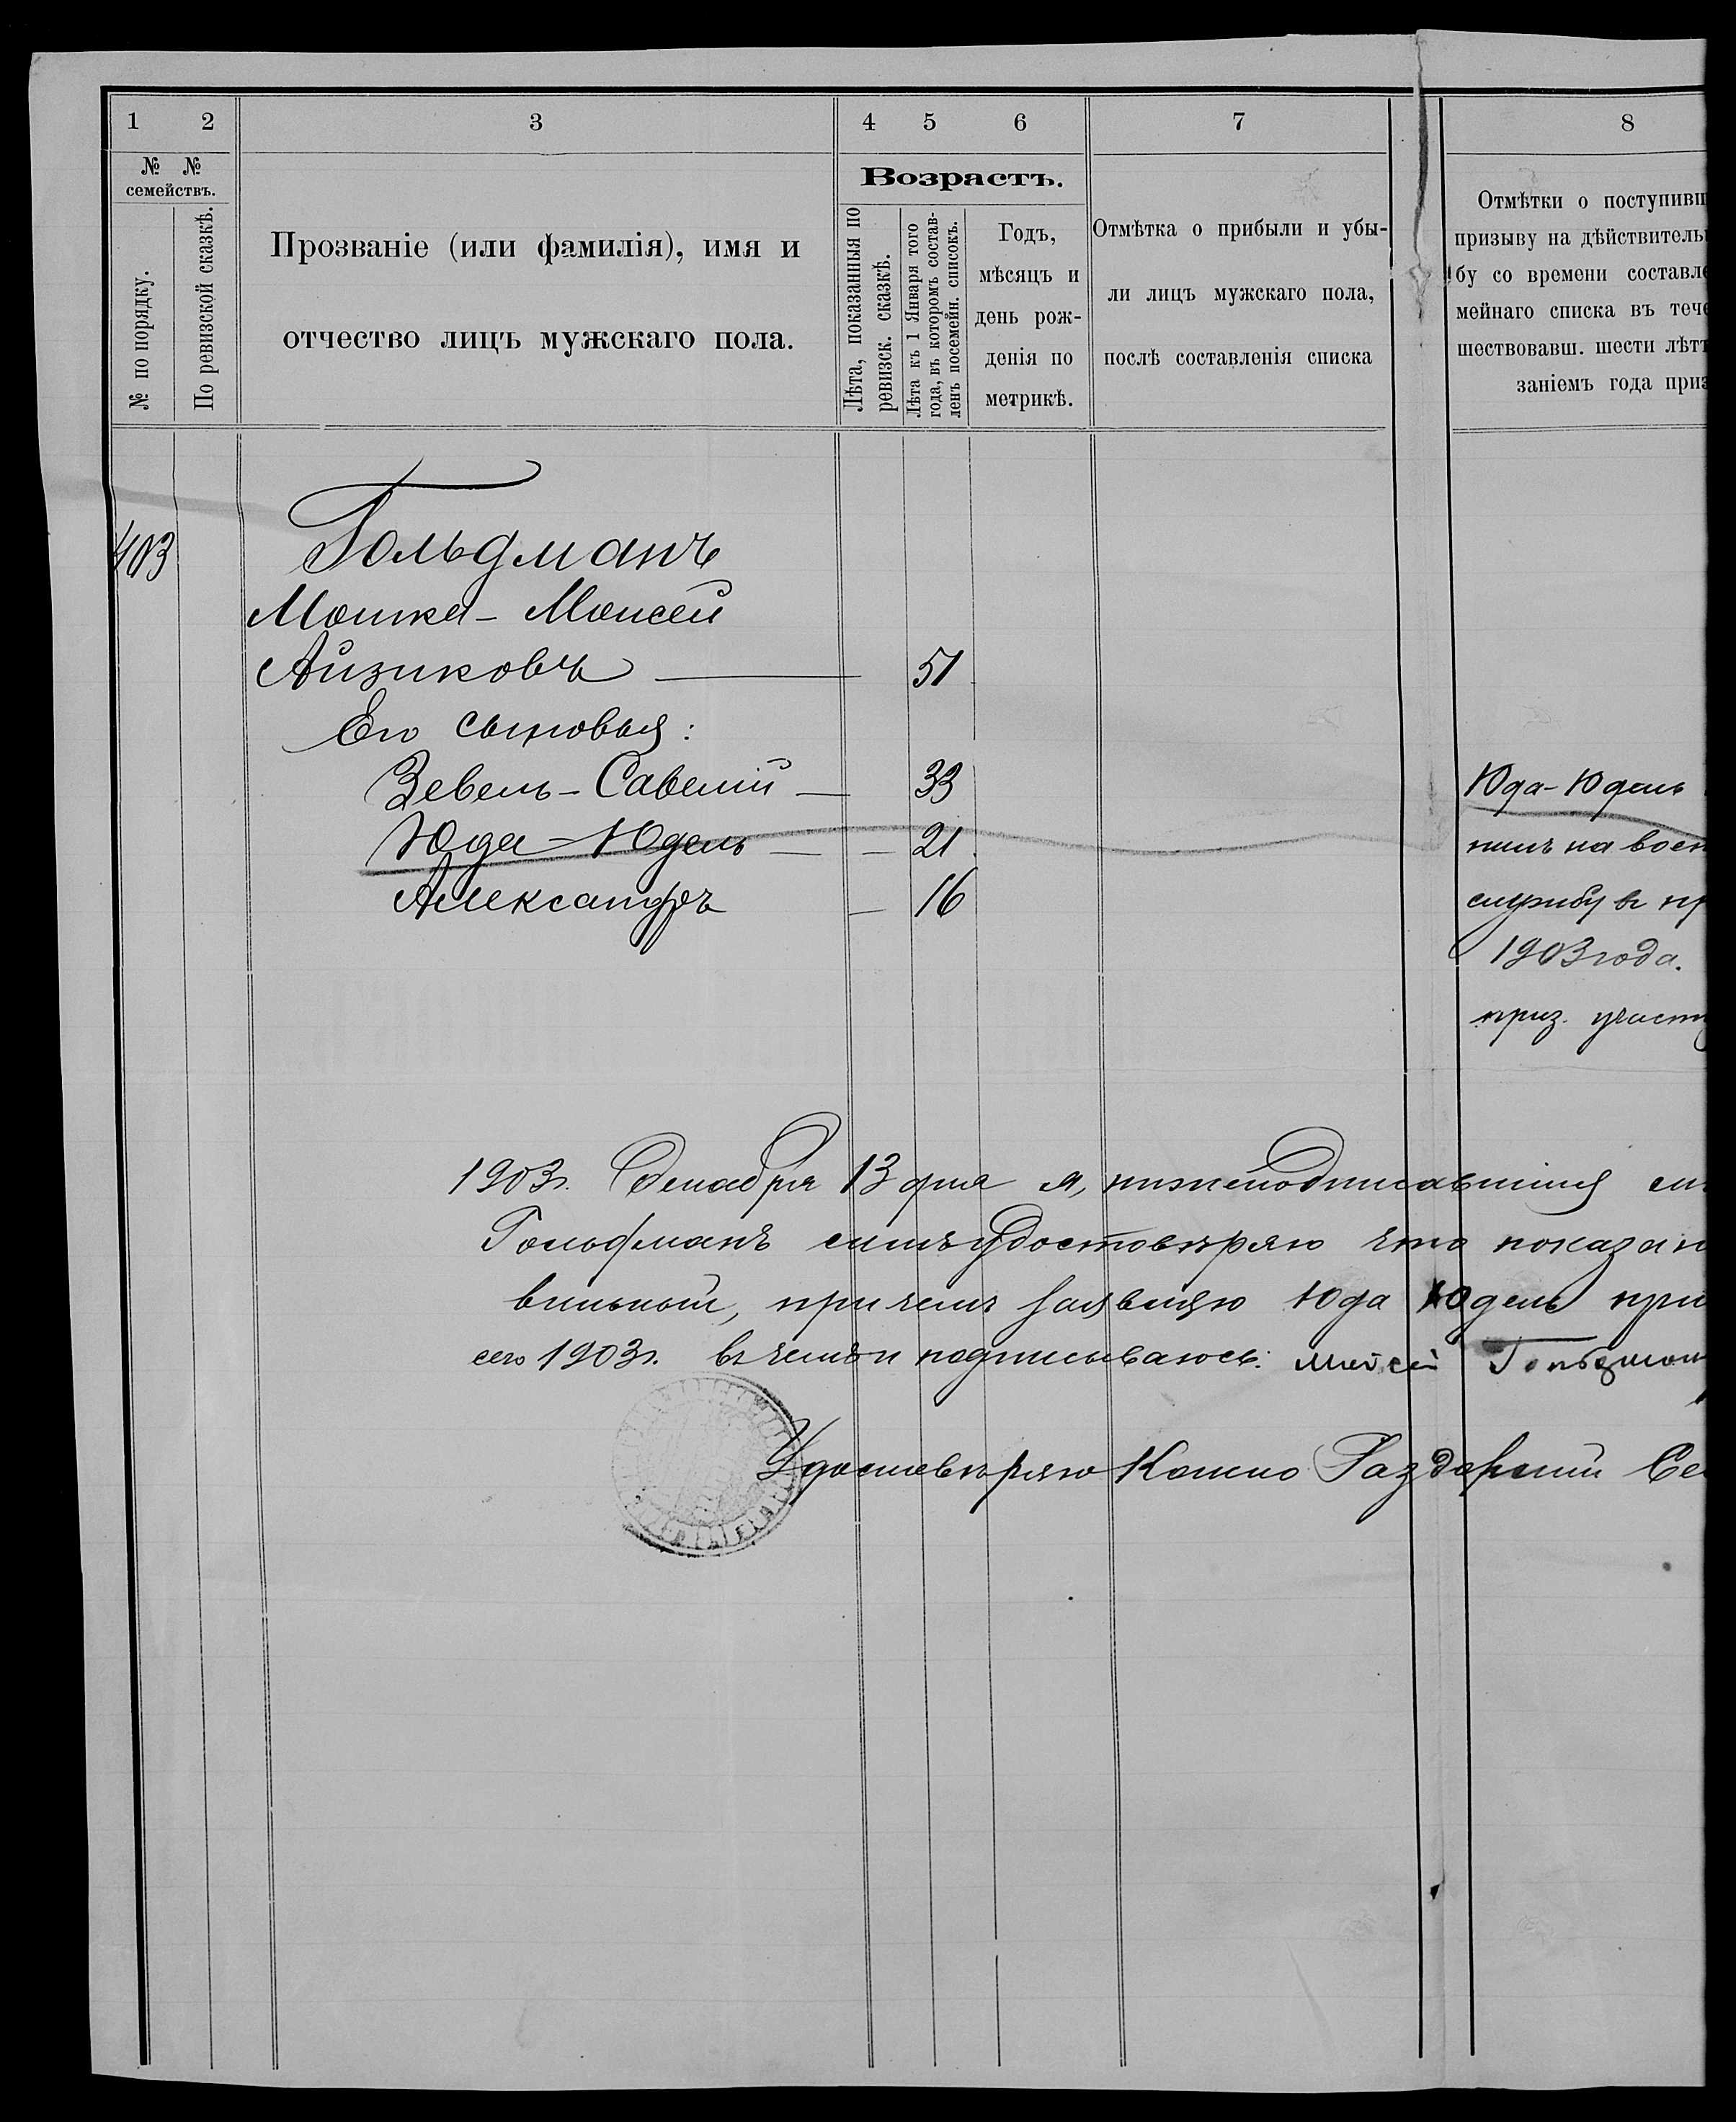 1 2 3 4 5 6 7 8
№ № семействъ.
№ по порядку.
По ревизской сказкѣ.
Прозваніе (или фамилія), имя и
отчество лицъ мужскаго пола.
Возрастъ.
Лѣта, показанныя по
ревизск. сказкѣ.
Лѣта къ 1 Января того
года, въ которомъ состав-
ленъ посемейн. списокъ.
Годъ,
мѣсяцъ и
день рож-
денія по
метрикѣ.
Отмѣтка о прибыли и убы-
ли лицъ мужскаго пола,
послѣ составленія списка
Отмѣтки о поступивш
призыву на дѣйствитель
бу со времени составле
мейнаго списка въ тече
шествовавш. шести лѣтъ
заніемъ года приз
403 Гольдманъ
Мошка - Моисей
Айзиковъ — 51
Его сыновья:
Зевель - Савелій — 33
Юда - Юдель — 21
Александръ — 16
Юда - Юдель
нятъ на воен
службу въ пр
1903 года.
приз. участ
1903 г. Декабря 13 дня я, нижеподписавшійся
Гольдманъ симъ удостовѣряю что показан
вильный, при чемъ заявляю Юда Юдель при
сего 1903 г. въ чемъ и подписываюсь: Мойсей Гольдман
Удостовѣряю Раздорскій